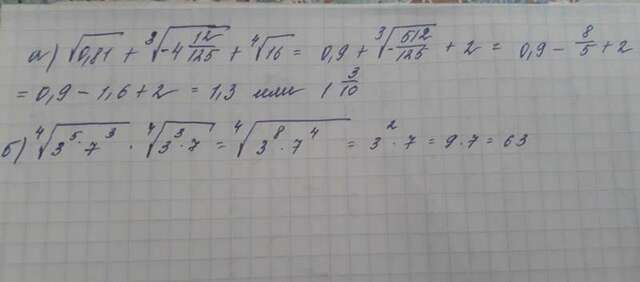 а) √0,81 + ³√-4 12/125 + ⁴√16 = 0,9 + ³√-512/125 + 2 = 0,9 - 8/5 + 2
= 0,9 - 1,6 + 2 = 1,3 или 1 3/10
б) ⁴√3⁵·7³ · ⁴√3³·7 = ⁴√3⁸·7⁴ = 3²·7 = 9·7 = 63